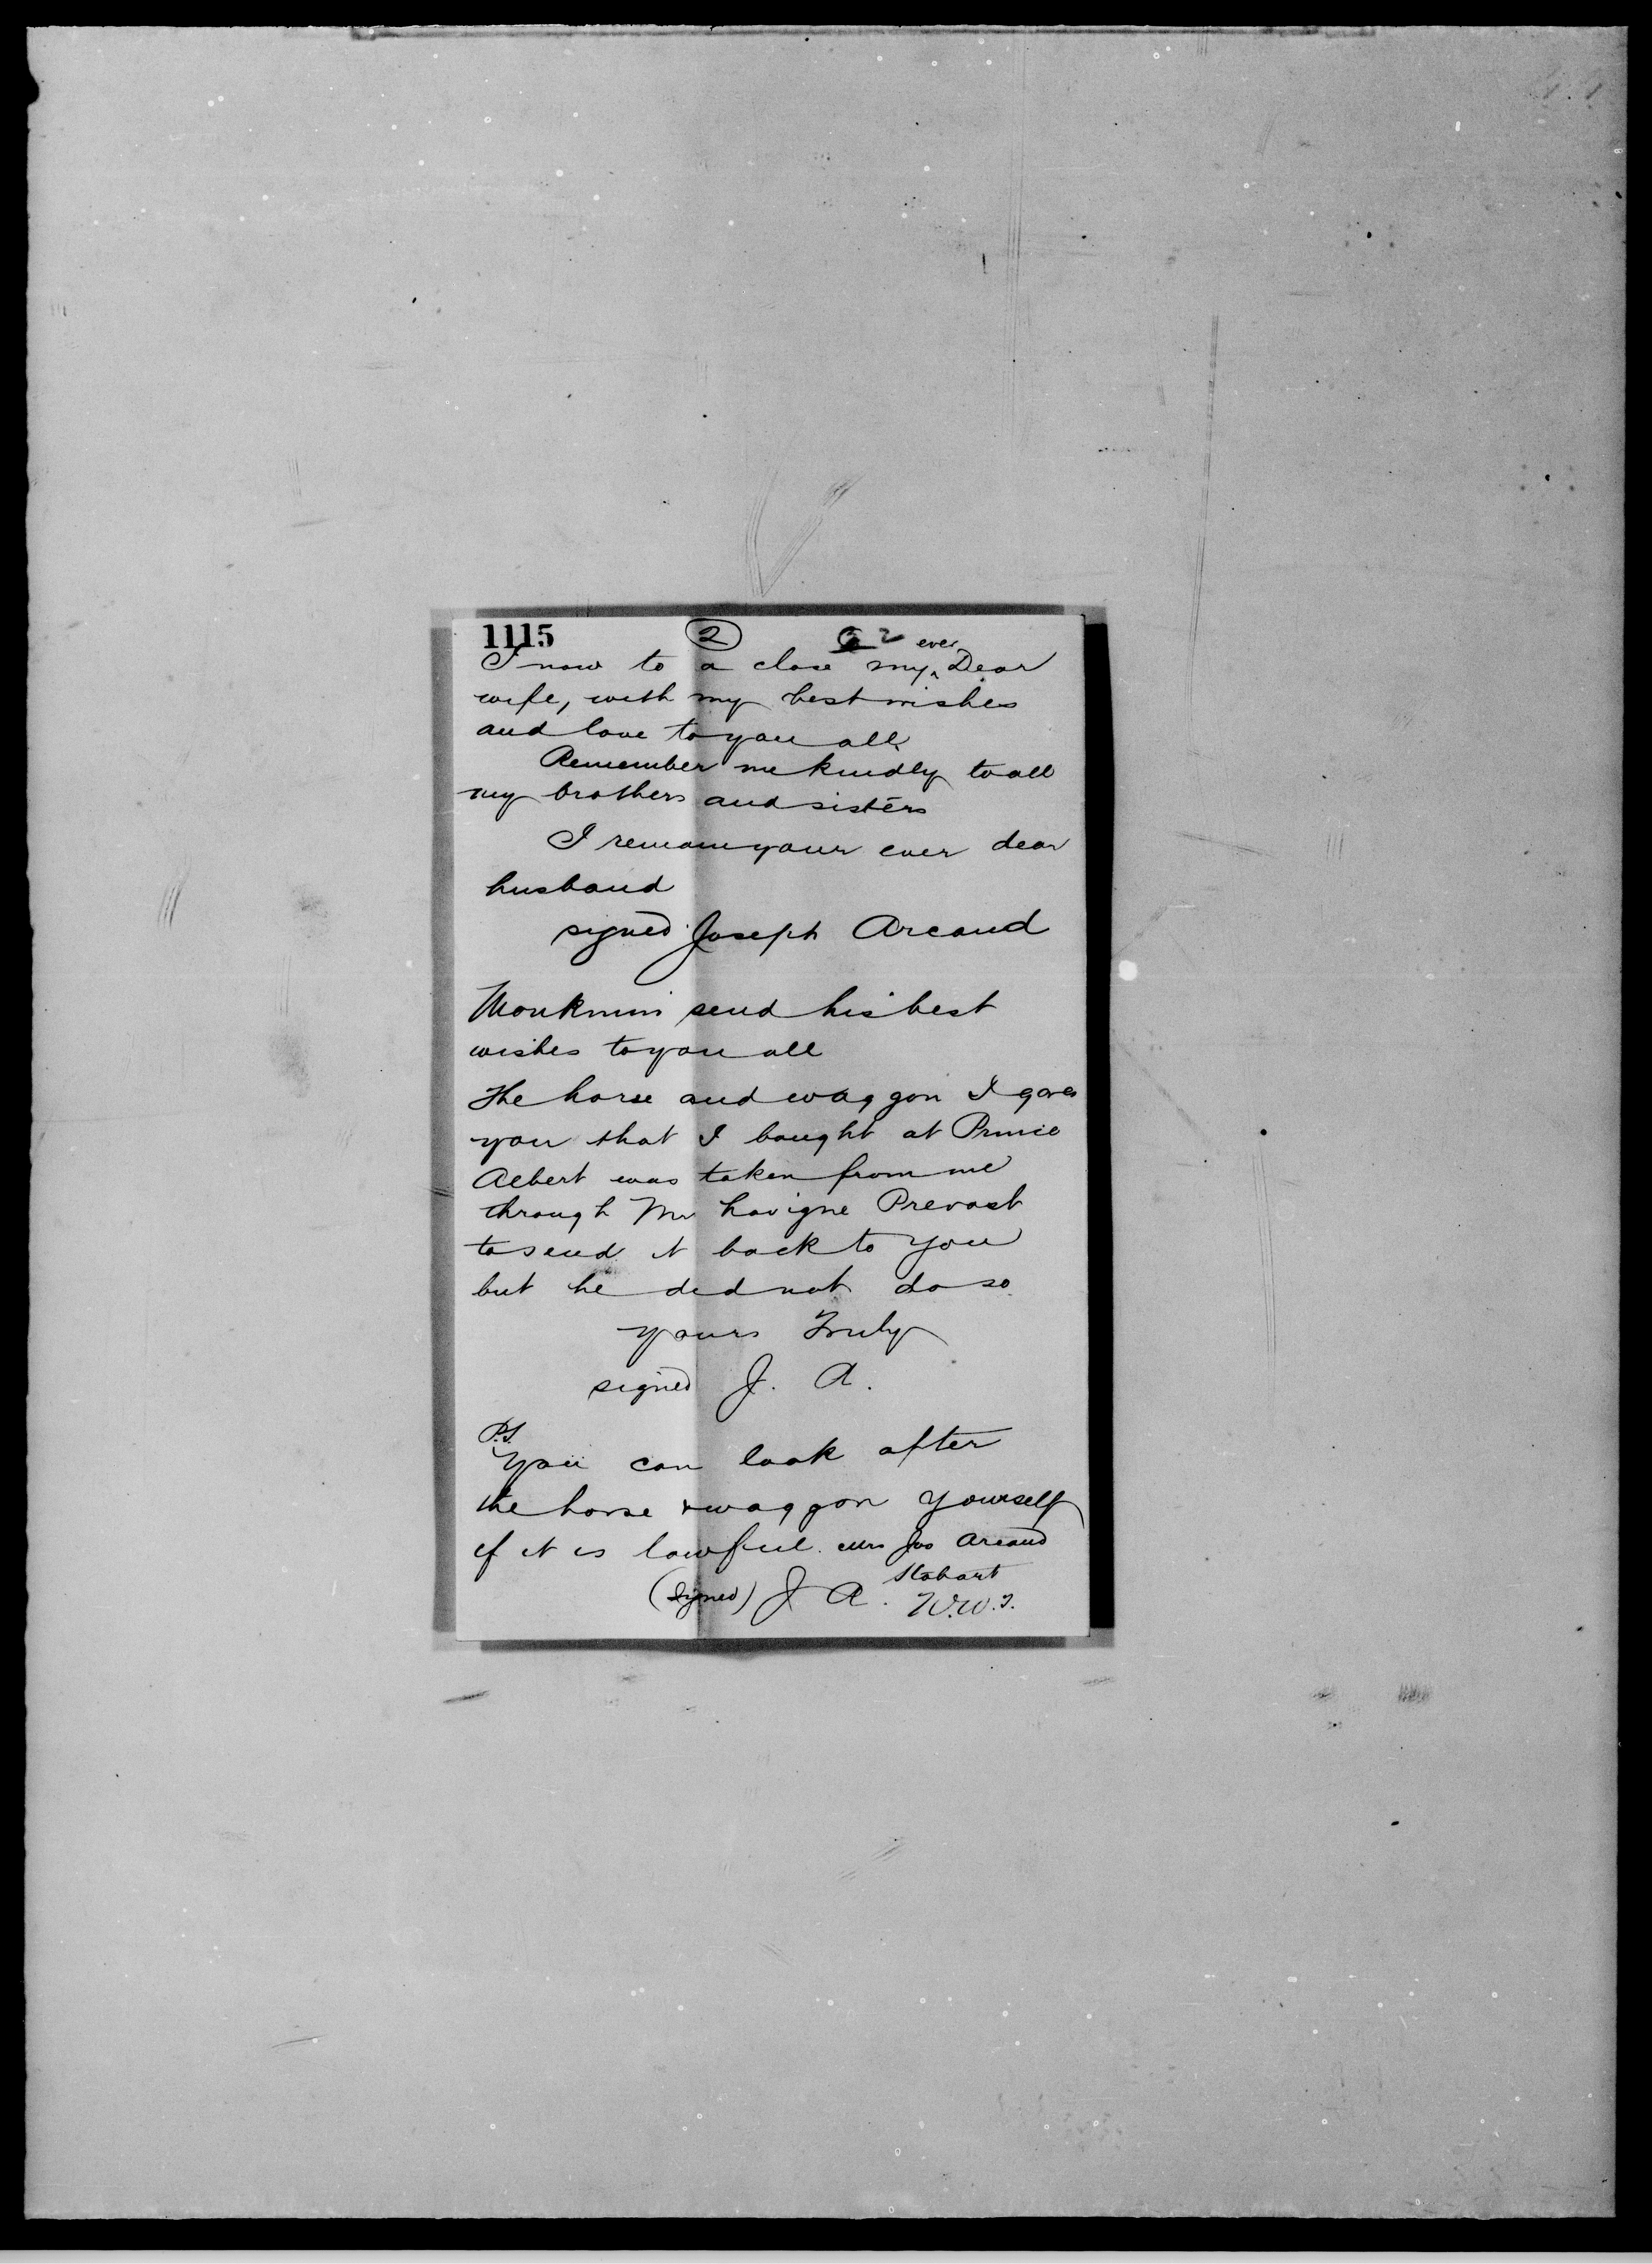 1115 2 2
I now to a close my ever Dear
wife, with my best wishes
and love to you all
Remember me kindly to all
my brothers and sisters
I remain your ever dear
husband
signed Joseph Arcand
send his best
wishes to you all
The horse and waggon I gave
you that I bought at Prince
Albert was taken from me
through Mr Lavigne Prevost
to send it back to you
but he did not do so
yours Truly
signed J. A.
P.S.
You can look after
the horse & waggon yourself
if it is lawful. Mrs Jos Arcand
Stobart
(signed) J A. N.W.T.